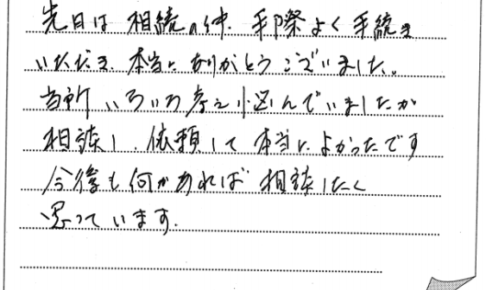 先日は相続の件、手際よく手続き
いただき、本当にありがとうございました。
当所いろいろ考え小悩んでいましたが
相談し、依頼して本当によかったです
今後も何かあれば相談したく
思っています.